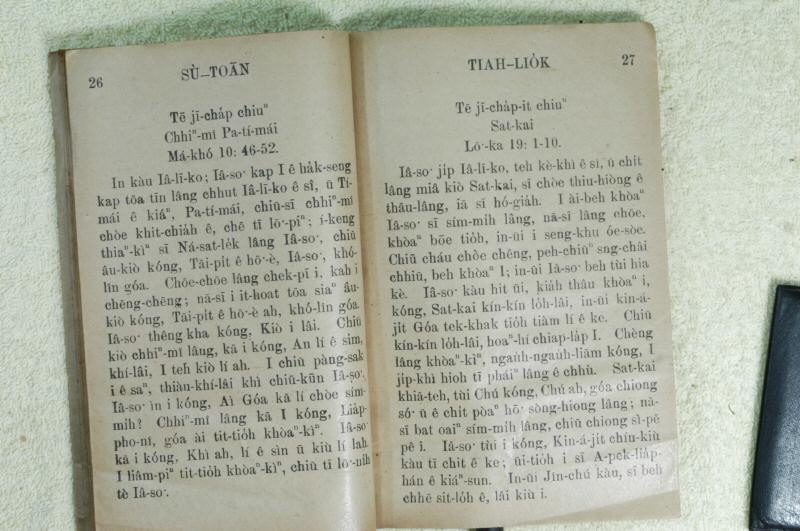 26
SÙ-TOĀN
Tē jī-cha̍p chiuⁿ
Chhiⁿ-mî Pa-tí-mái
Má-khó 10: 46-52.
In kàu Iâ-lī-ko; Iâ-so͘ kap I ê ha̍k-seng
kap tōa tīn lâng chhut Iâ-lī-ko ê sî, ū Tí-
mái ê kiáⁿ, Pa-tí-mái, chiū-sī chhiⁿ-mî
chòe khit-chia̍h ê, chē tī lō͘-piⁿ; í-keng
thiaⁿ-kìⁿ sī Ná-sat-le̍k lâng Iâ-so͘, chiū
âu-kiò kóng, Tāi-pit ê hō͘-è, Iâ-so͘, khó-
lîn góa. Chōe-chōe lâng chek-pī i, kah i
chēng-chēng; nā-sī i it-hoat tōa siaⁿ âu-
kiò kóng, Tāi-pit ê hō͘-è ah, khó-lîn góa.
Iâ-so͘ thêng kha kóng, Kiò i lâi. Chiū
kiò chhiⁿ-mî lâng, kā i kóng, An lí ê sim,
khí-lâi, I teh kiò lí ah. I chiū pàng-sak
i ê saⁿ, thiàu-khí-lâi khì chiū-kūn Iâ-so͘.
Iâ-so͘ ìn i kóng, Aì Góa kā lí chòe sím-
mih? Chhiⁿ-mî lâng kā I kóng, Lia̍p-
pho-nî, góa ài tit-tio̍h khòaⁿ-kìⁿ. Iâ-so͘
kā i kóng, Khì ah, lí ê sìn ū kiù lí lah.
I liâm-piⁿ tit-tio̍h khòaⁿ-kìⁿ, chiū tī lō͘-nih
tè Iâ-so͘.
TIAH-LIO̍K
27
Tē jī-cha̍p-it chiuⁿ
Sat-kai
Lō͘-ka 19: 1-10.
Iâ-so͘ ji̍p Iâ-lī-ko, teh kè-khì ê sî, ū chi̍t
lâng miâ kiò Sat-kai, sī chòe thiu-hiòng ê
thâu-lâng, iā sī hó-gia̍h. I ài-beh khòaⁿ
Iâ-so͘ sī sím-mih lâng, nā-sī lâng chōe,
khòaⁿ bōe tio̍h, in-ūi i seng-khu óe-sòe.
Chiū cháu chòe chêng, peh-chiūⁿ sng-châi
chhiū, beh khòaⁿ I; in-ūi Iâ-so͘ beh tùi hia
kè. Iâ-so͘ kàu hit ūi, kia̍h thâu khòaⁿ i,
kóng, Sat-kai kín-kín lo̍h-lâi, in-ūi kin-á-
ji̍t Góa tek-khak tio̍h tiàm lí ê ke. Chiū
kín-kín lo̍h-lâi, hoaⁿ-hí chiap-la̍p I. Chèng
lâng khòaⁿ-kìⁿ, nga̍uh-nga̍uh-liām kóng, I
ji̍p-khì hioh tī pháiⁿ lâng ê chhù. Sat-kai
khiā-teh, tùi Chú kóng, Chú ah, góa chiong
só͘ ū ê chi̍t pòaⁿ hō͘ sòng-hiong lâng; nā-
sī bat oaiⁿ sím-mih lâng, chiū chiong sì-pē
pê i. Iâ-so͘ tùi i kóng, Kin-á-ji̍t chín-kiù
kàu tī chit ê ke; ūi-tio̍h i sī A-pek-lia̍p-
hán ê kiáⁿ-sun. In-ūi Jîn-chú kàu, sī beh
chhē sit-lo̍h ê, lâi kiù i.